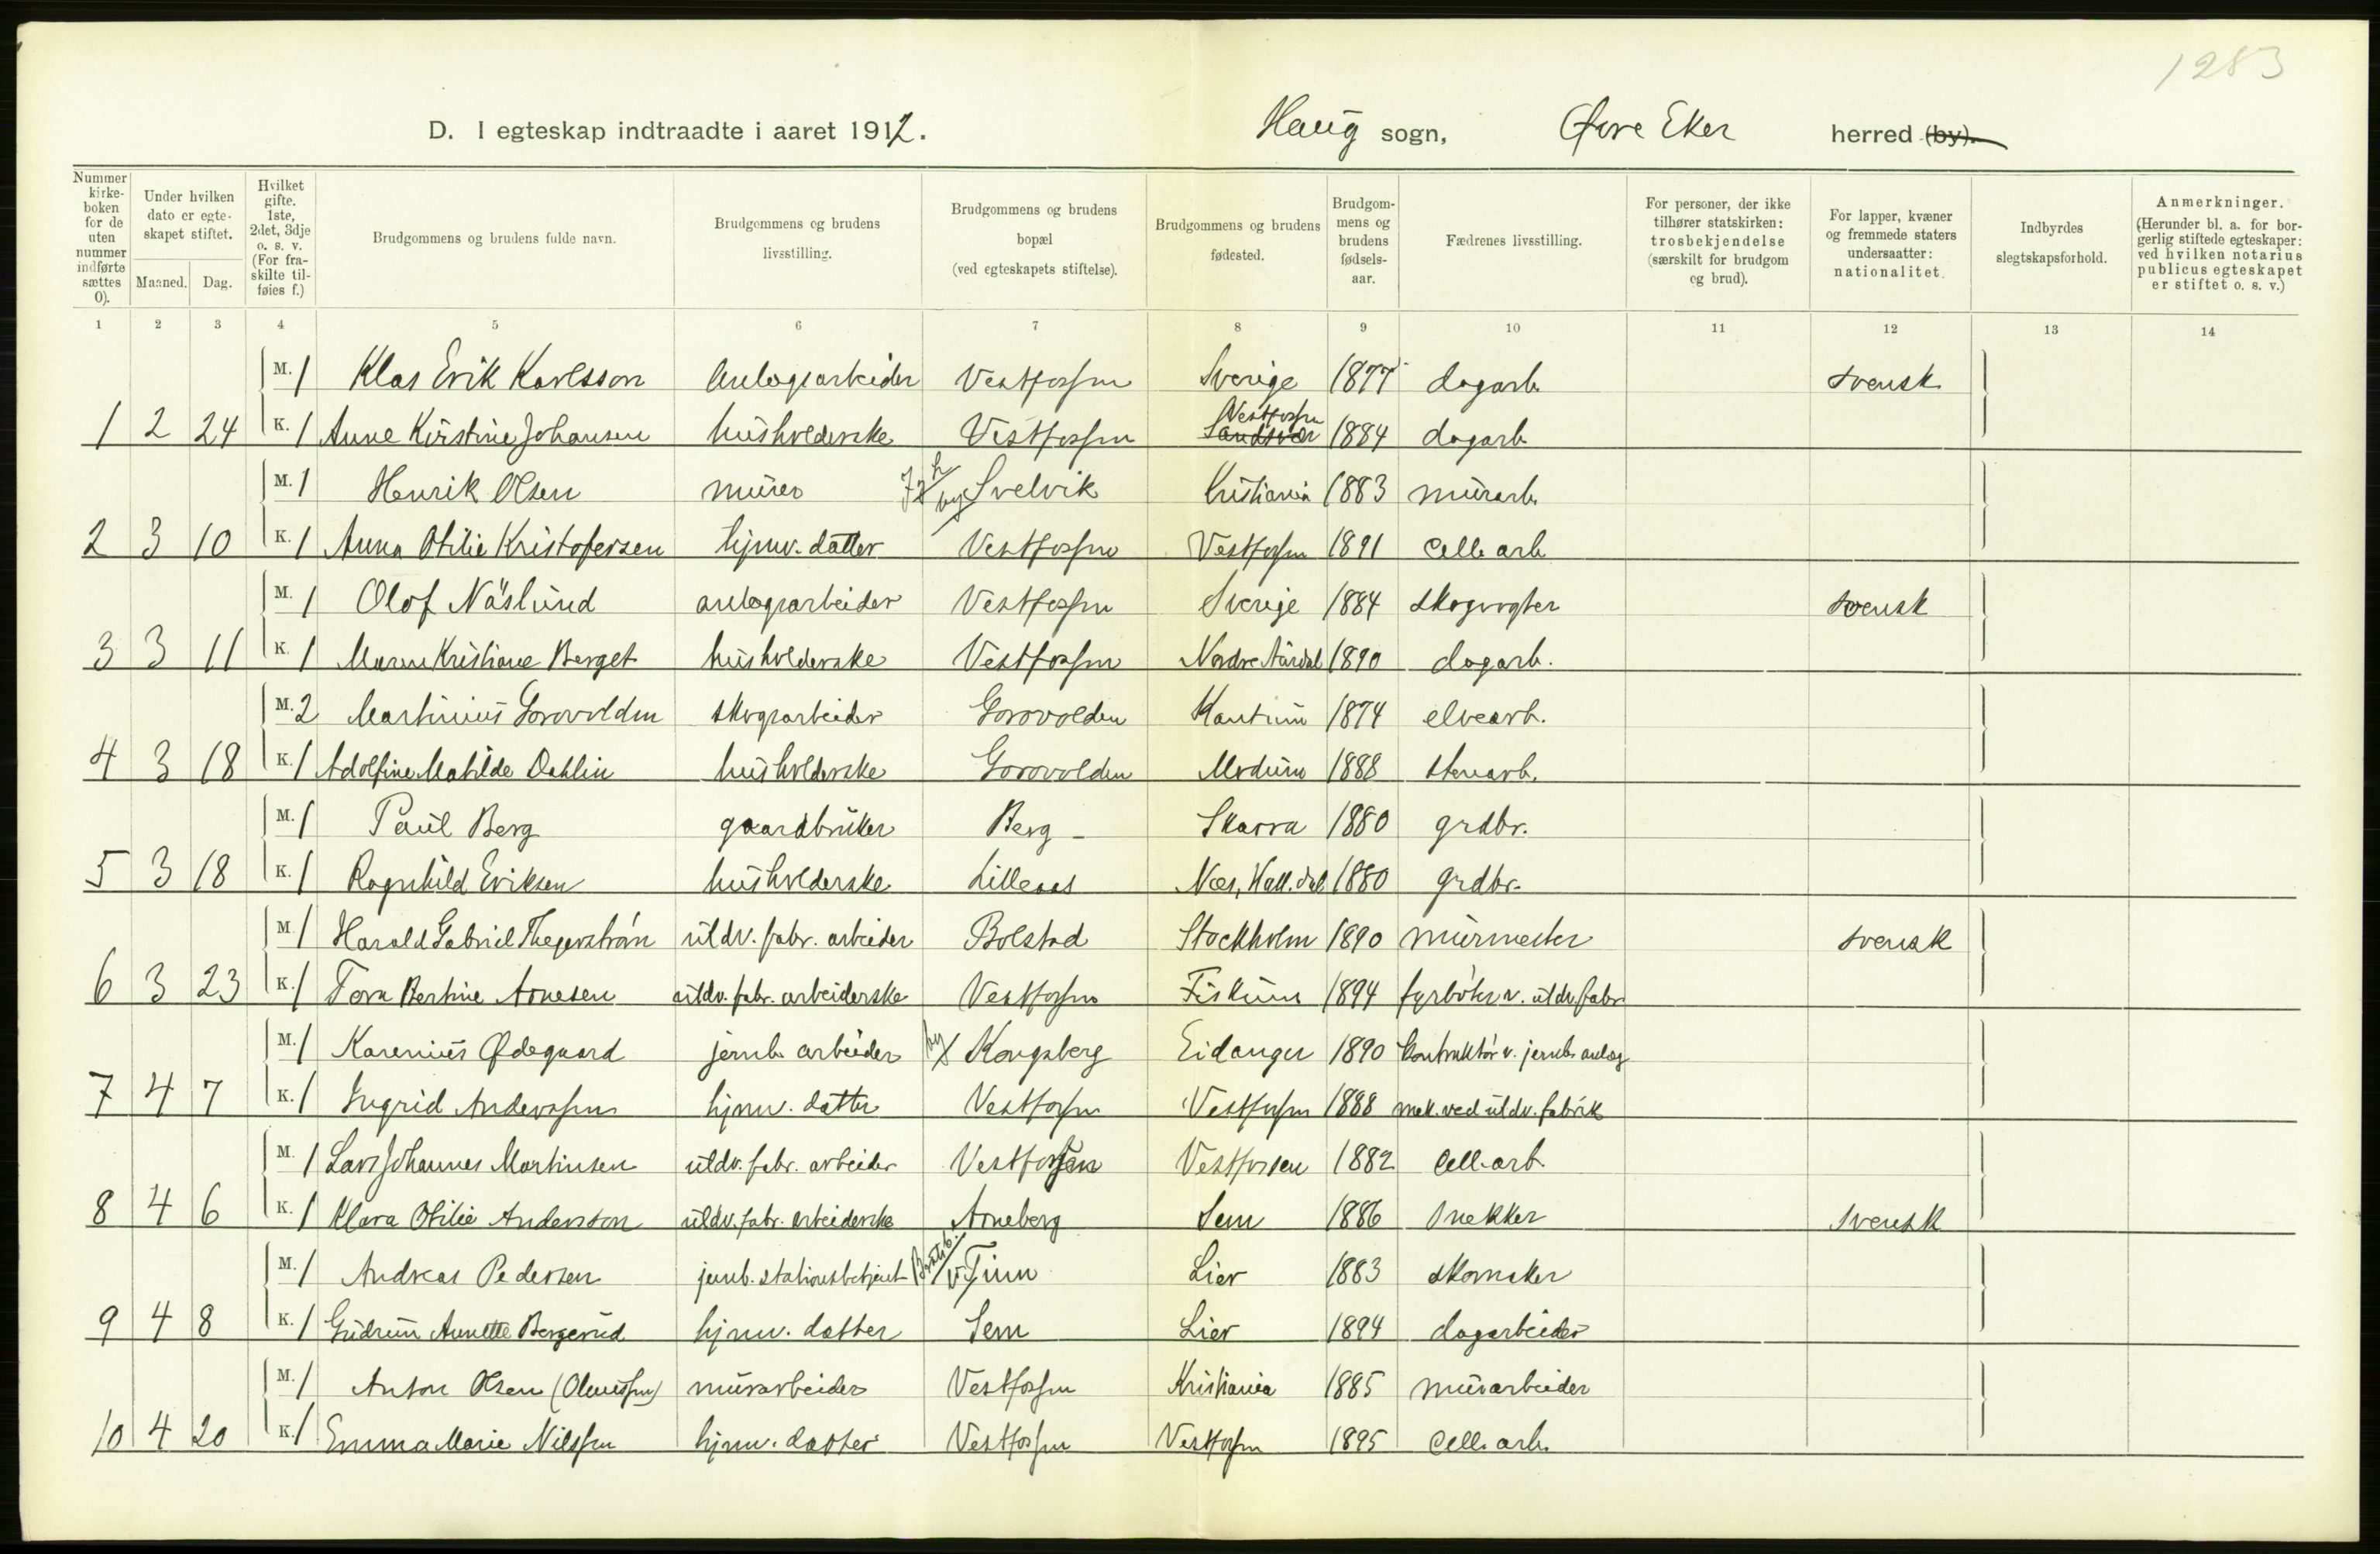 1283
D. I egteskap indtraadte i aaret 1912. Haug sogn, Øvre Eker herred (by).
Nummer kirkeboken for de uten nummer indførte sættes 0). Under hvilken dato er egteskapet stiftet. Maaned. Dag. Hvilket gifte. 1ste, 2det, 3dje o. s. v. (For fraskilte tilføies f.) Brudgommens og brudens fulde navn. Brudgommens og brudens livsstilling. Brudgommens og brudens bopæl (ved egteskapets stiftelse). Brudgommens og brudens fødested. Brudgommens og brudens fødselsaar. Fædrenes livsstilling. For personer, der ikke tilhører statskirken: trosbekjendelse (særskilt for brudgom og brud). For lapper, kvæner og fremmede staters undersaatter: nationalitet. Indbyrdes slegtskapsforhold. Anmerkninger. (Herunder bl. a. for borgerlig stiftede egteskaper: ved hvilken notarius publicus egteskapet er stiftet o. s. v.)
1 2 3 4 5 6 7 8 9 10 11 12 13 14
M. 1 Klas Erik Karlsson anlægsarbeider Vestfossen Sverige 1877 dagarb. svensk
Vestfossen
1 2 24 K. 1 Anne Kirstine Johansen husholderske Vestfossen Sandsvær 1884 dagarb.
M. 1 Henrik Olsen murer by Svelvik Kristiania 1883 murarb.
2 3 10 K. 1 Anna Otilie Kristofersen hjmv. datter Vestfossen Vestfossen 1891 cell. arb.
M. 1 Olof Näslund anlægsarbeider Vestfossen Sverige 1884 skogvogter svensk
3 3 11 K. 1 Maren Kristiane Berget husholderske Vestfossen Nordre Aurdal 1890 dagarb.
M. 2 Martinius Gorovolden skogsarbeider Gorovolden 1874 elvearb.
4 3 18 K. 1 Adolfine Matilde Dahlin husholderske Gorovolden Modum 1888 stenarb.
M. 1 Paul Berg gaardbruker Berg Skarra 1880 grdbr.
5 3 18 K. 1 Ragnhild Eriksen husholderske Lilleaas Næs, Hall.dal 1880 grdbr.
M. 1 Harald Gabriel Thegerström uldv. fabr. arbeider Bolstad Stockholm 1890 murmester svensk
6 3 23 K. 1 Tora Bertine Arnesen uldv. fabr. arbeiderske Vestfossen Fiskum 1894 fyrbøter v. uldv. fabr.
M. 1 Karenius Ødegaard jernb. arbeider by Kongsberg Eidanger 1890 kontraktør v. jernb. anlæg
7 4 7 K. 1 Ingrid Anderssen hjmv. datter Vestfossen Vestfossen 1888 mek. ved uldv. fabrik
M. 1 Lars Johannes Martinsen uldv. fabr. arbeider Vestfossen Vestfossen 1882 cell. arb.
8 4 6 K. 1 Klara Otilie Anderson uldv. fabr. arbeiderske Arneberg Sem 1886 snekker svensk
M. 1 Andreas Pedersen jernb. stationsbetjent Tinn Lier 1883 skomaker
9 4 8 K. 1 Gudrun Annette Bergerud hjmv. datter Sem Lier 1894 dagarbeider
M. 1 Anton Olsen (Olaussen) murarbeider Vestfossen Kristiania 1885 murarbeider
10 4 20 K. 1 Emma Marie Nilssen hjmv. datter Vestfossen Vestfossen 1895 cell. arb.